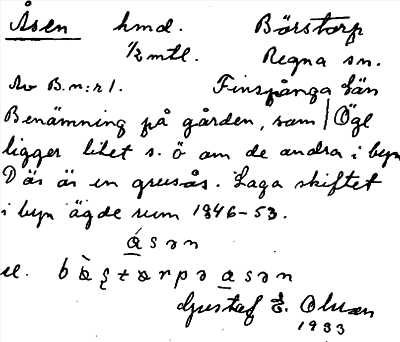 Åsen hmd. Börstorp
1/2 mtl. Regna sn.
Av B.n:r 1. Finspånga län
Benämning på gården, som | Ögl
ligger litet s. ö om de andra i byn
Där är en grusås. Laga skiftet
i byn ägde rum 1846-53.
ásən
el. bö̀ʂtɷrpə asən
Gustaf E. Olsson
1933